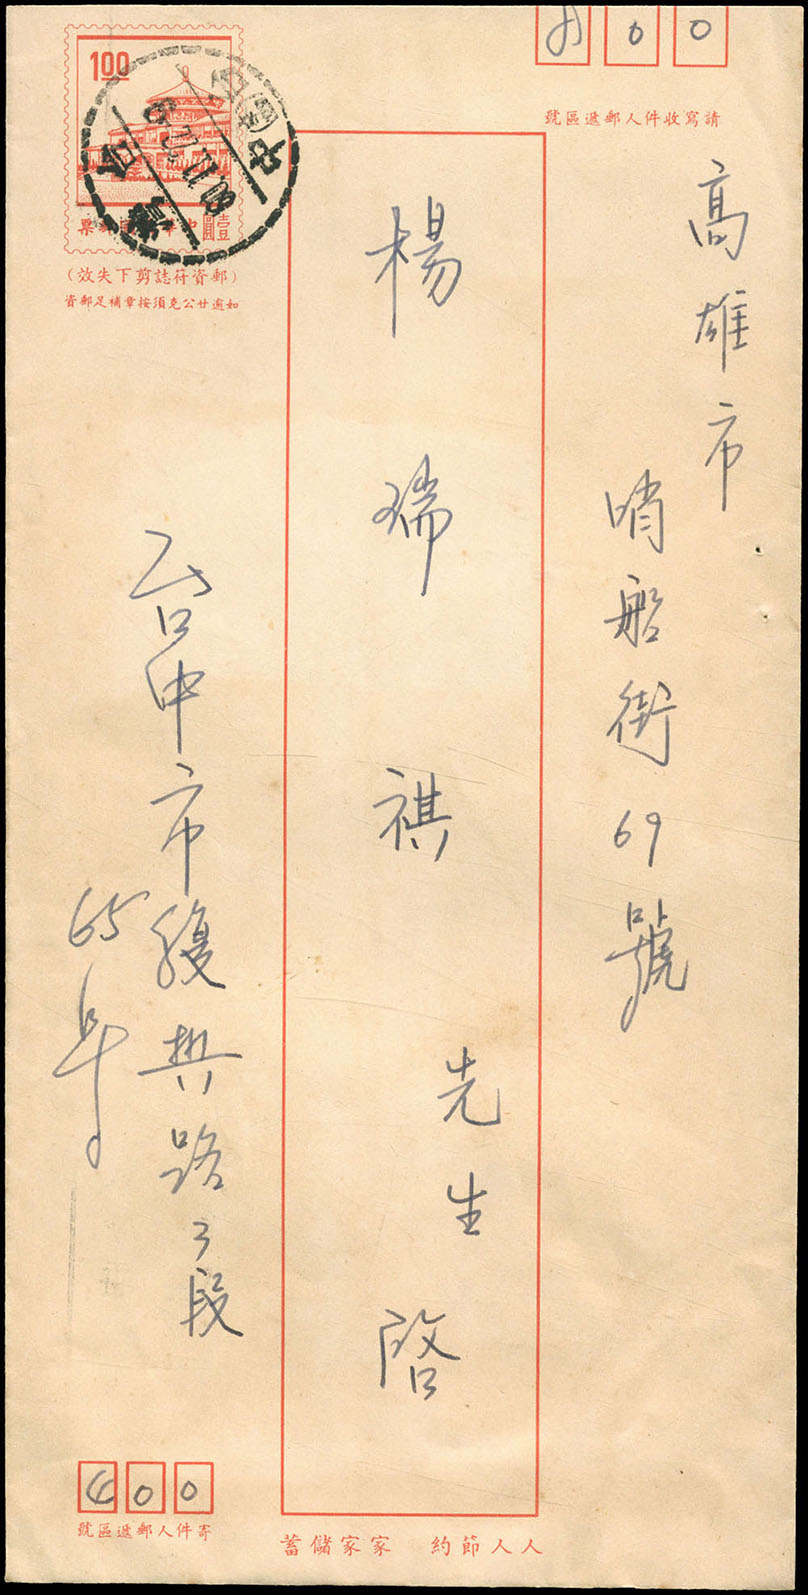 800
請寫收件人郵遞區號
高雄市
哨船街69號
楊瑞祺先生啓
1.00
中華民國郵票
壹圓
(郵資符誌剪下失效)
如逾廿公克須按章補足郵資
台中市復興路3段
65
400
寄件人郵遞區號
人人節約 家家儲蓄